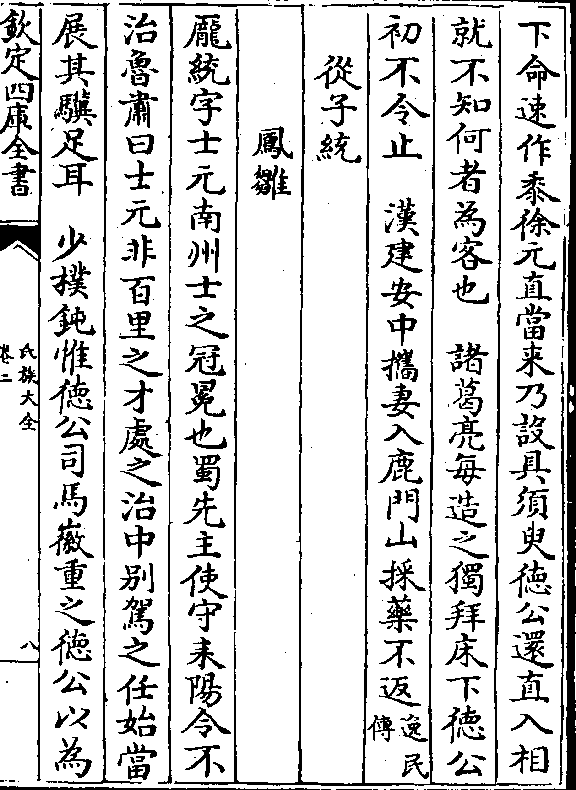 下命速作黍徐元直當来乃設具須臾徳公還直入相
就不知何者為客也　諸葛亮每造之獨拜床下徳公
初不令止　漢建安中攜妻入鹿門山採藥不返逸民傳
從子統
鳳雛
龐統字士元南州士之冠冕也蜀先主使守耒陽令不
治魯肅曰士元非百里之才處之治中别駕之任始當
展其驥足耳　少樸鈍惟徳公司馬徽重之徳公以為
欽定四庫全書
氏族大全
卷二
八